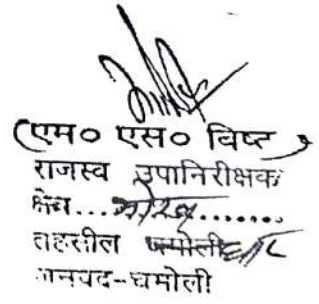 (एम० एस० विष्ट)
राजस्व उपानिरीक्षक
क्षेत्र...........
तहसील चमोली
जनपद-चमोली